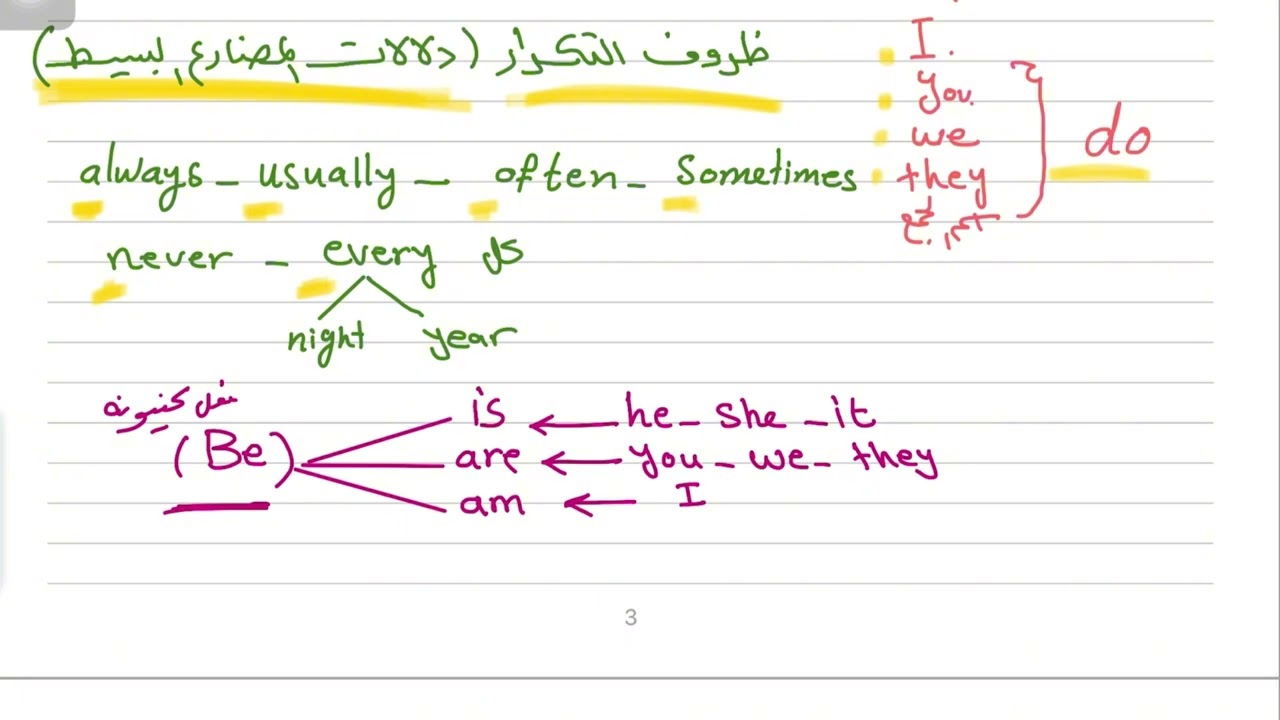 ظروف التكرار (دلالات المضارع البسيط)
always – usually – often – Sometimes
never – every كل
night year
I.
you.
we
they
اسم جمع
do
فعل كينونه
(Be)
is ← he – she – it
are ← you – we – they
am ← I
3